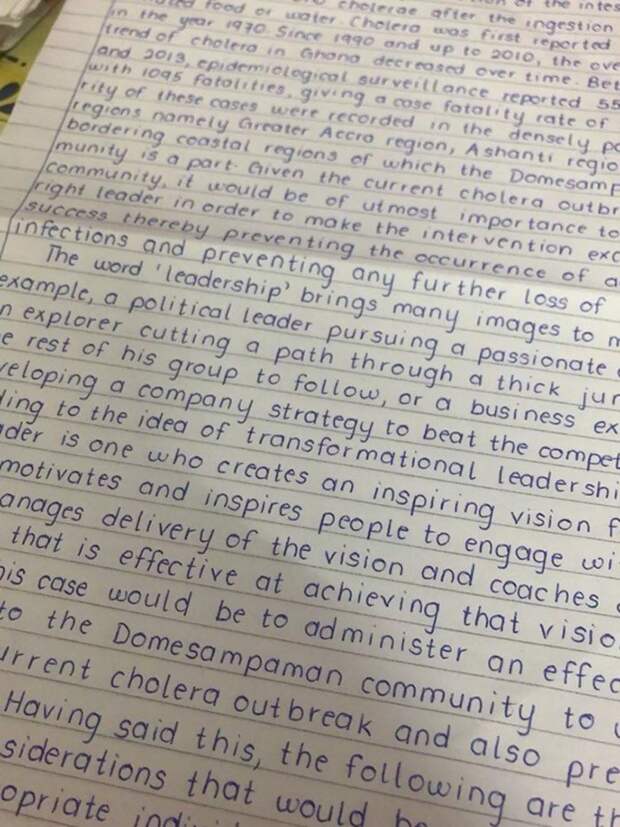 cholerae after the ingestion
food or water. Cholera was first reported
in the year 1970. Since 1990 and up to 2010, the ove
trend of cholera in Ghana decreased over time. Bet
and 2013, epidemiological surveillance reported 55
with 1095 fatalities, giving a case fatality rate of
rity of these cases were recorded in the densely po
regions namely Greater Accra region, Ashanti regio
bordering coastal regions of which the Domesamp
munity is a part. Given the current cholera outbr
community, it would be of utmost importance to
right leader in order to make the intervention exc
success thereby preventing the occurrence of a
infections and preventing any further loss of
The word 'leadership' brings many images to m
example, a political leader pursuing a passionate
n explorer cutting a path through a thick jun
e rest of his group to follow, or a business ex
veloping a company strategy to beat the compet
ding to the idea of transformational leadershi
der is one who creates an inspiring vision f
motivates and inspires people to engage wi
anages delivery of the vision and coaches
that is effective at achieving that visio
his case would be to administer an effec
to the Domesampaman community to
urrent cholera outbreak and also pre
Having said this, the following are th
siderations that would be
opriate